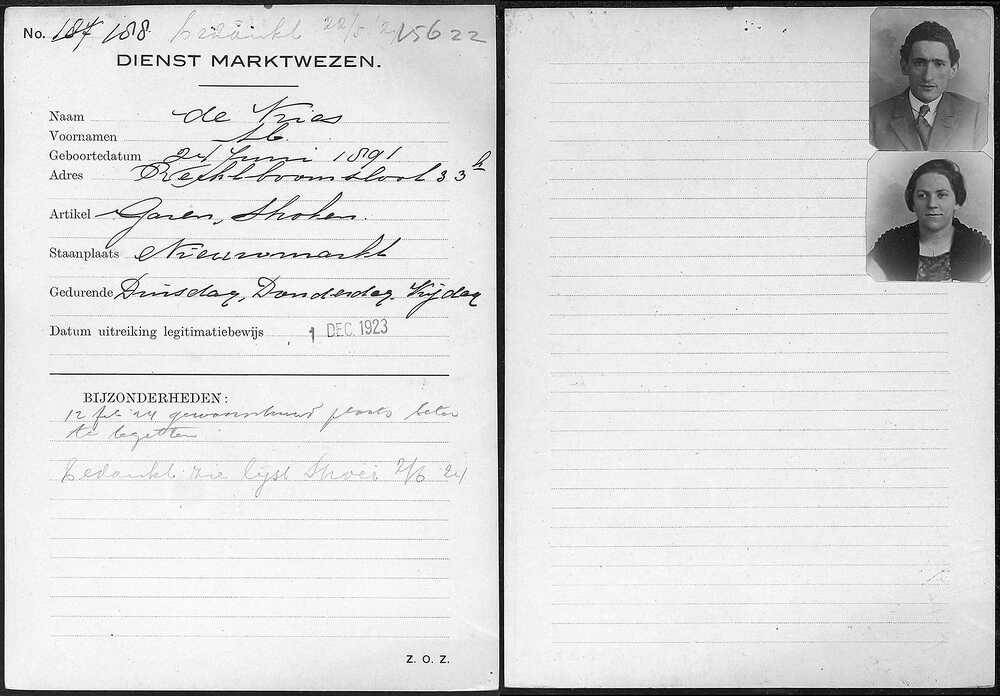 No. 187 188 bedankt 22/5 2 15622
DIENST MARKTWEZEN.
Naam de Vries
Voornamen Ab.
Geboortedatum 24 Juni 1891
Adres Rechtboomsloot 33 h
Artikel Garen,
Staanplaats Nieuwmarkt
Gedurende Dinsdag, Donderdag. Vrijdag
Datum uitreiking legitimatiebewijs 1 DEC. 1923
BIJZONDERHEDEN:
12 feb 24 gewaarschuwd plaats beter
te bezetten
bedankt zie lijst 2/6 24
Z. O. Z.